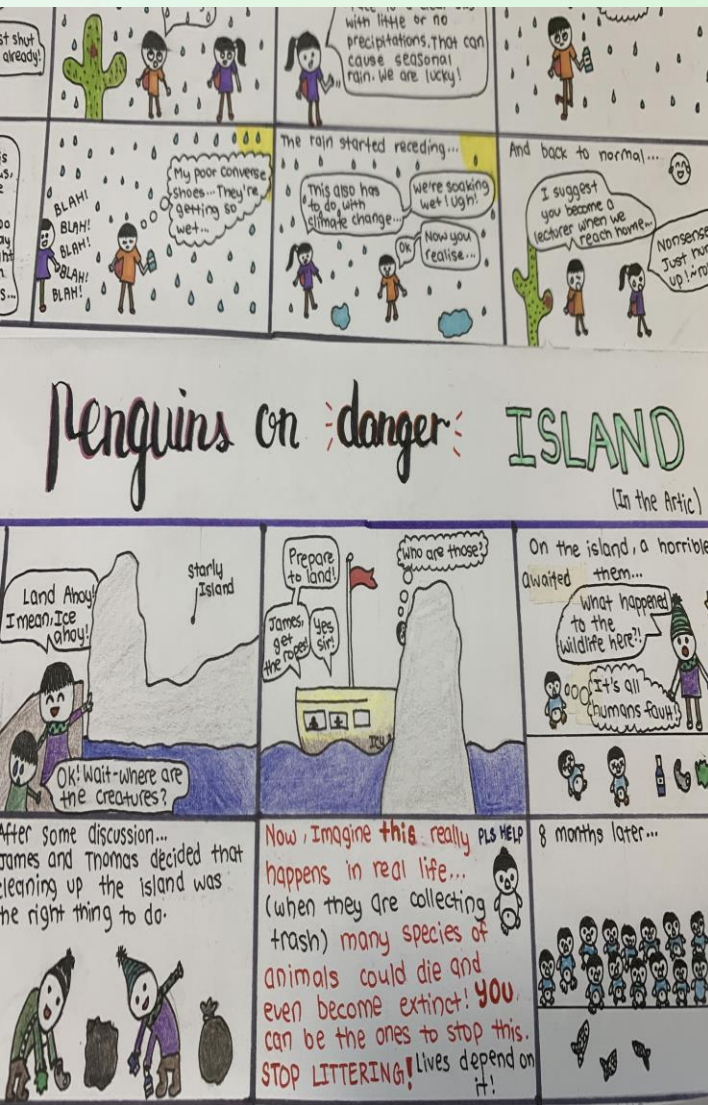 st shut
already!
with little or no
precipitations. That can
cause seasonal
rain. We are lucky!
BLAH!
BLAH!
BLAH!
BLAH!
BLAH!
My poor converse
shoes... They're
getting so
wet...
The rain started receding...
This also has
to do with
climate change...
we're soaking
wet! Ugh!
OK
Now you
realise...
And back to normal...
I suggest
you become a
lecturer when we
reach home...
Nonsense
Just hur
up!
Penguins on danger ISLAND
(In the Artic)
Land Ahoy!
I mean, Ice
ahoy!
Starly
Island
OK! Wait-where are
the creatures?
Prepare
to land!
James,
get
the ropes!
Yes
sir!
Who are those?
ICY
On the island, a horrible
awaited them...
What happened
to the
wildlife here?!
It's all
humans fault!
After some discussion...
James and Thomas decided that
cleaning up the island was
the right thing to do.
Now, Imagine this really
happens in real life...
(when they are collecting
trash) many species of
animals could die and
even become extinct! YOU
can be the ones to stop this.
STOP LITTERING! Lives depend on
it!
PLS HELP
8 months later...